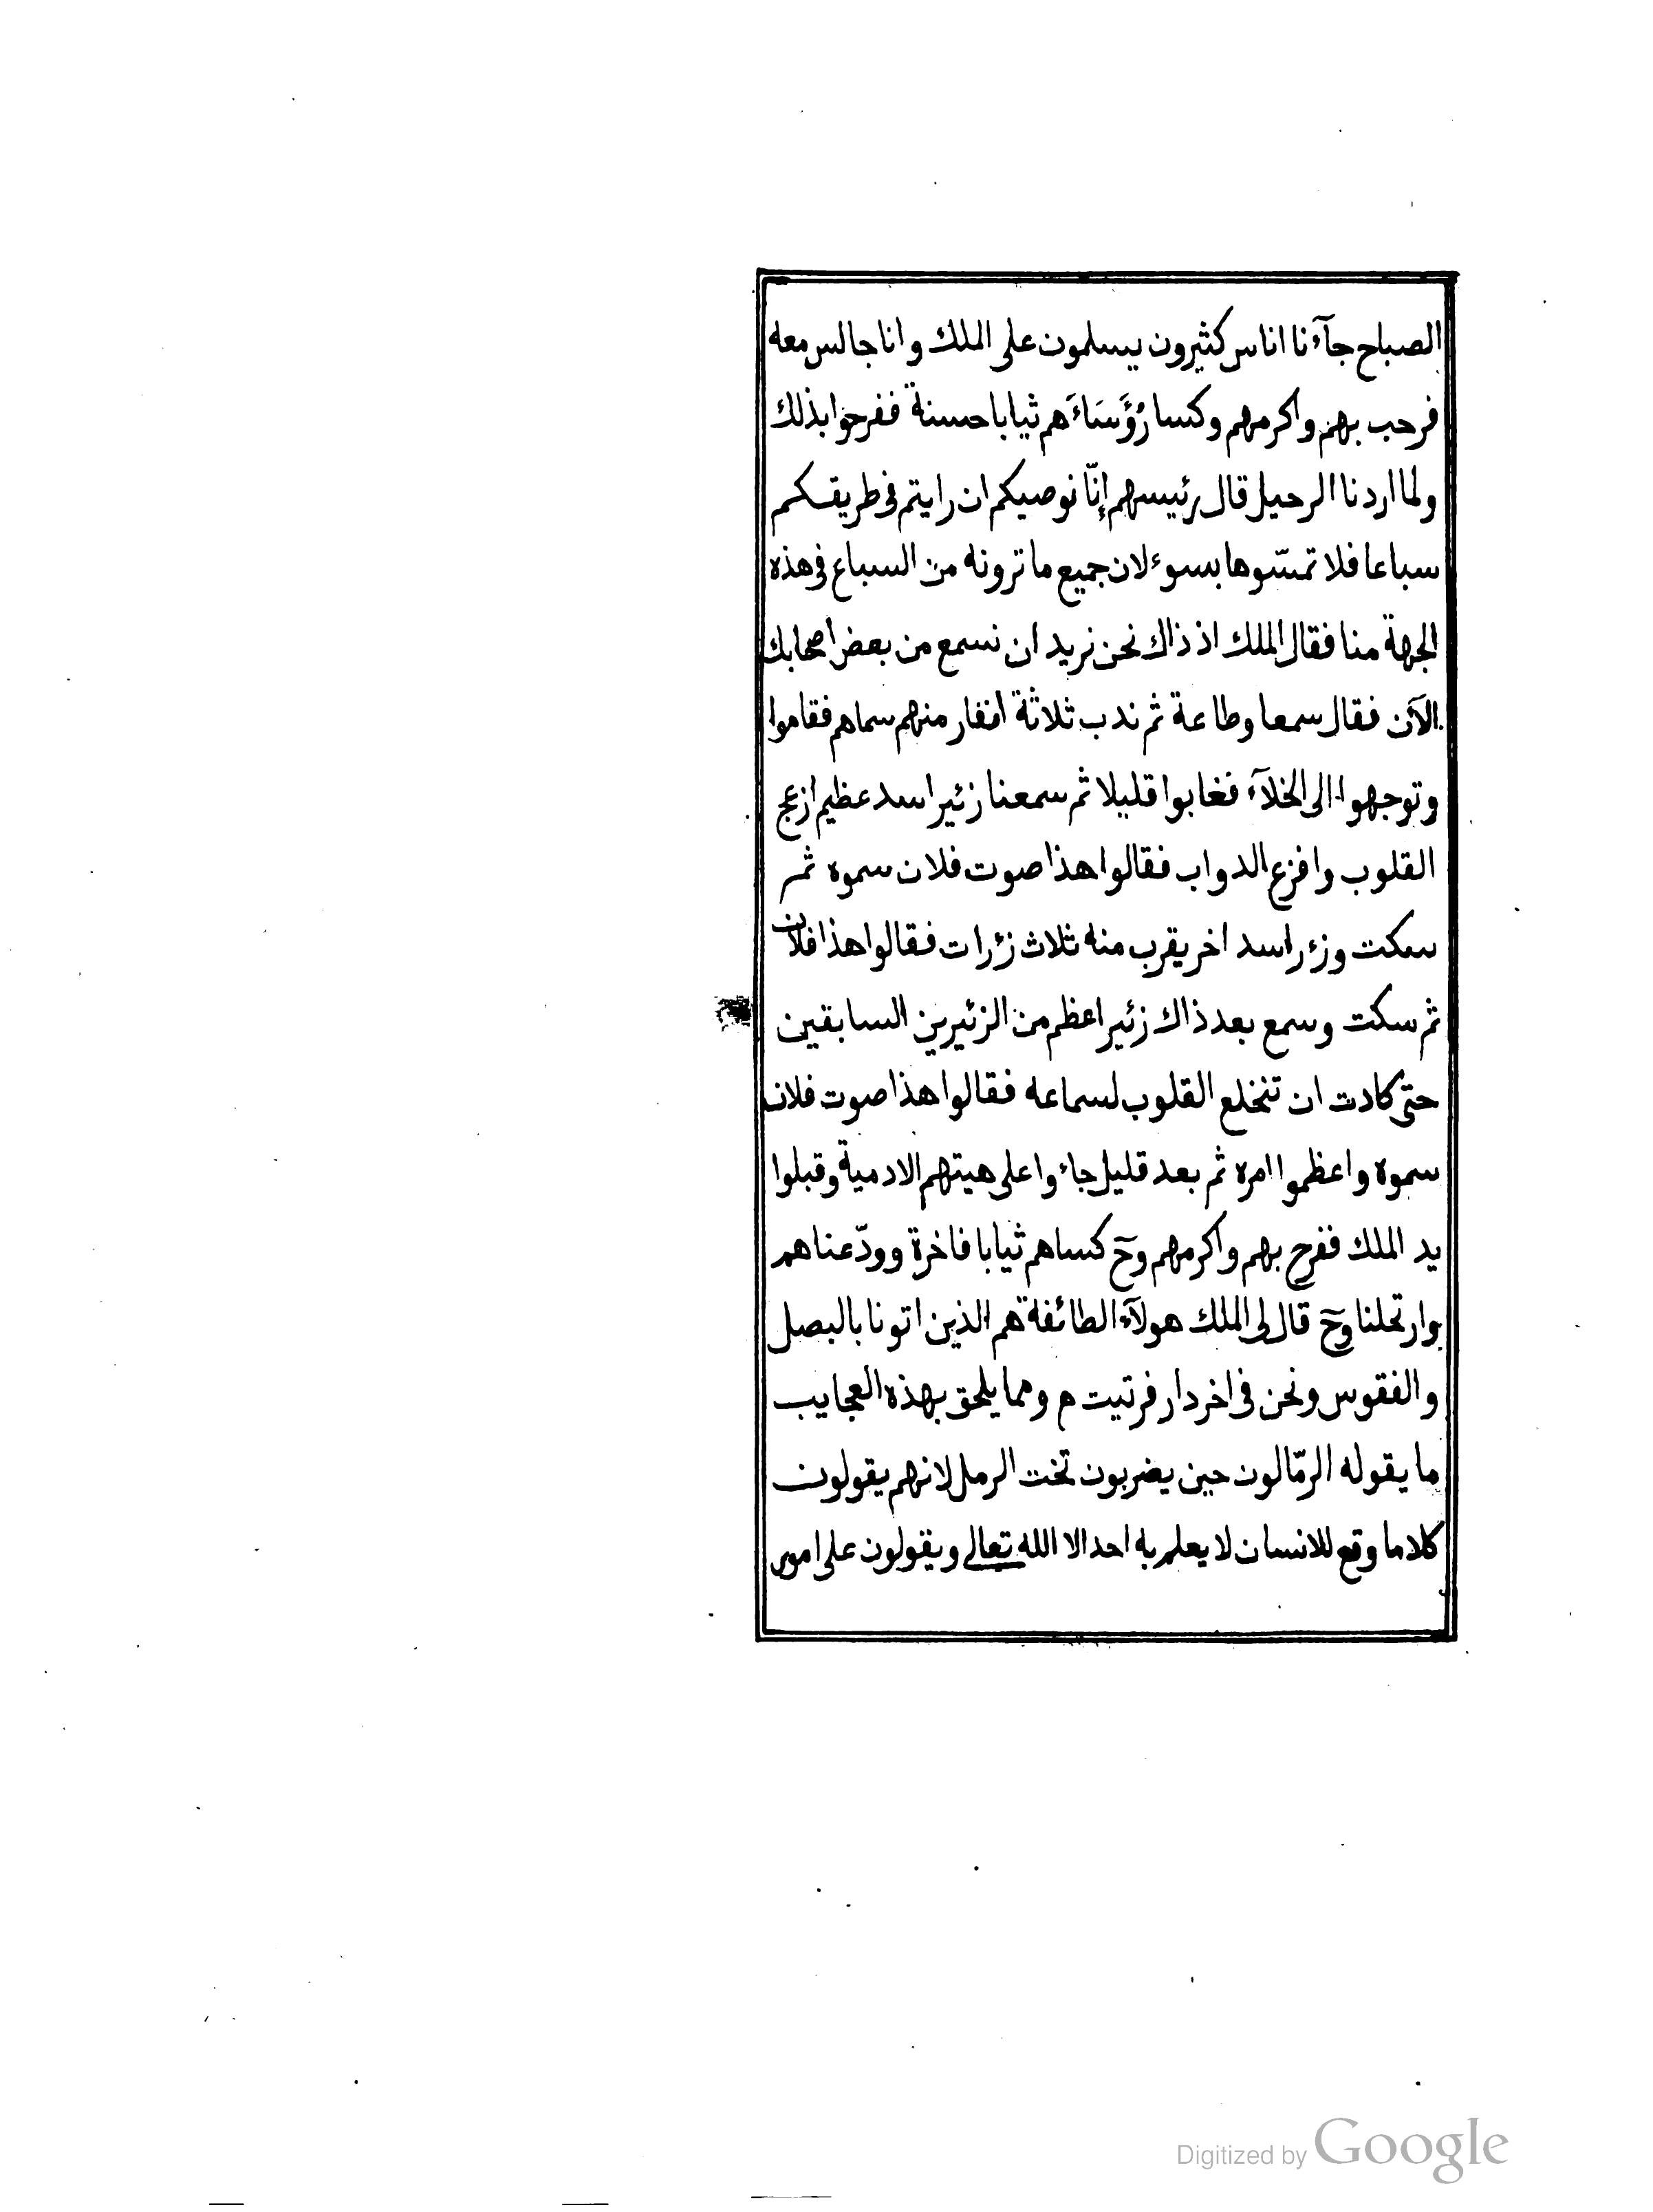 الصباح جآءنا اناس كثيرون يسلمون على الملك وانا جالس معه
فرحب بهم واكرمهم وكسا رُؤَسَاءَهم ثيابا حسنة ففرحوا بذلك
ولما اردنا الرحيل قال رئيسهم إنّا نوصيكم ان رايتم فى طريقكم
سباعا فلا تمسّوها بسوء لان جميع ما ترونه من السباع فى هذه
الجهة منا فقال الملك اذ ذاك نحن نريد ان نسمع من بعض اصحابك
الآن فقال سمعا وطاعة ثم ندب ثلاثة انفار منهم سماهم فقاموا
وتوجهوا الى الخلآء فغابوا قليلا ثم سمعنا زئير اسد عظيم ازعج
القلوب وافزع الدواب فقالوا هذا صوت فلان سموه ثم
سكت وزءر اسد اخر يقرب منه ثلاث زءرات فقالوا هذا فلان
ثم سكت وسمع بعد ذاك زئير اعظم من الزئيرين السابقين
حتى كادت ان تنخلع القلوب لسماعه فقالوا هذا صوت فلان
سموه واعظموا امره ثم بعد قليل جاءوا على هيتهم الادمية وقبلوا
يد الملك ففرح بهم واكرمهم وحٓ كساهم ثيابا فاخرة وودّعناهم
وارتحلنا وحٓ قال لى الملك هولآء الطائفة هم الذين اتونا بالبصل
والفقوس ونحن فى اخر دار فرتيت م ومما يلحق بهذه العجايب
ما يقوله الرمّالون حين يضربون تخت الرمل لانهم يقولون
كلاما وقع للانسان لا يعلم به احد الا الله تعالى ويقولون على امور
Digitized by Google